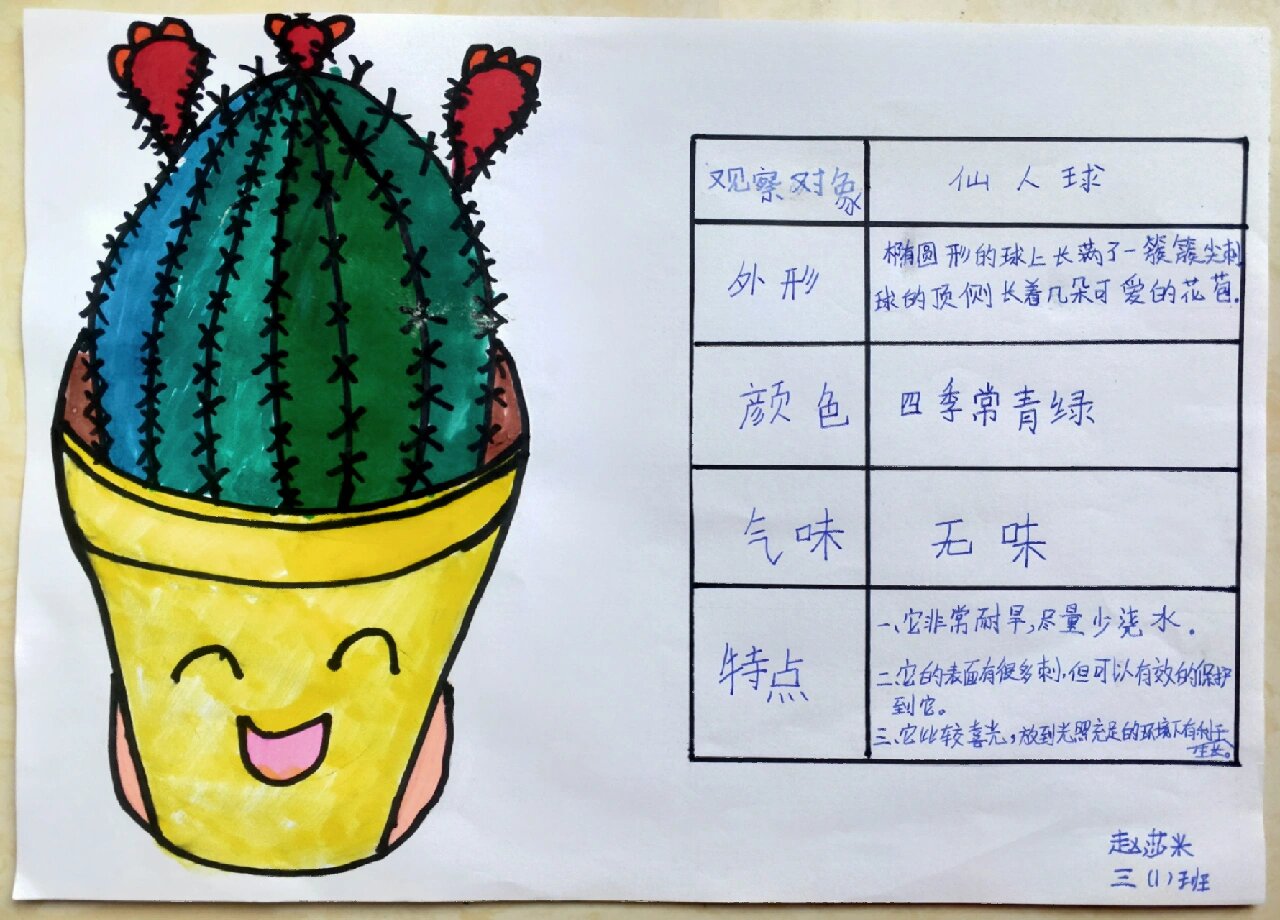 观察对象
仙人球
外形
椭圆形的球上长满了一簇簇尖刺
球的顶侧长着几朵可爱的花苞.
颜色
四季常青绿
气味
无味
特点
一、它非常耐旱,尽量少浇水.
二、它的表面有很多刺,但可以有效的保护
到它。
三、它比较喜光,放到光照充足的环境下有利于
生长。
赵莎米
三(1)班